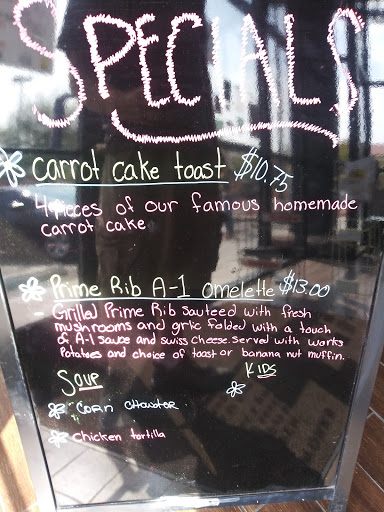 SPECIALS
Carrot cake toast $10.75
4 pieces of our famous homemade
carrot cake
Prime Rib A-1 omelette $13.00
Grilled Prime Rib Sauteed with fresh
mushrooms and grlic folded with a touch
of A-1 sauce and swiss cheese. Served with works
Potatoes and choice of toast or banana nut muffin.
Soup
KIDS
Corn chowder
Chicken tortilla